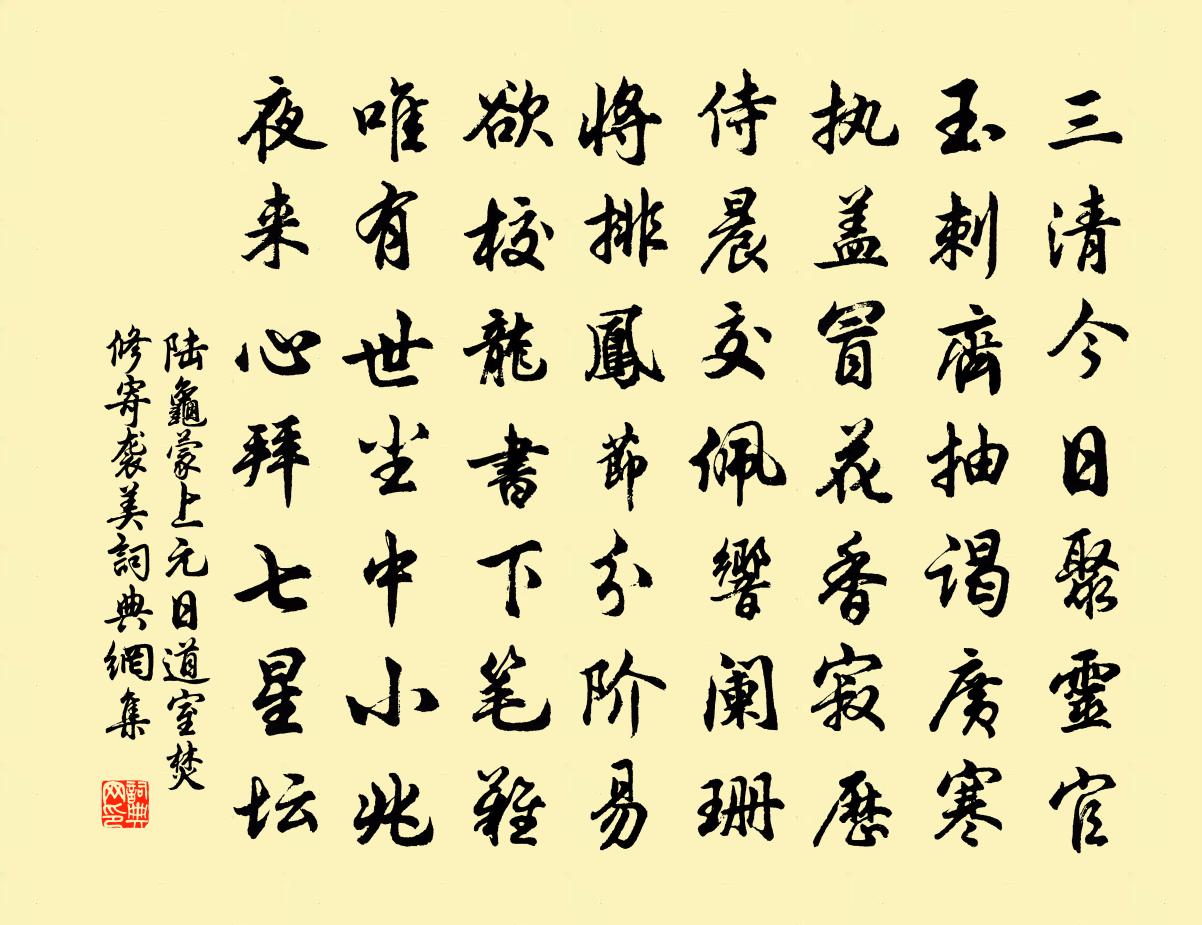 三清今日聚靈官
玉刺齊抽谒廣寒
执盖冒花香寂歷
侍晨交佩響阑珊
將排鳳節分阶易
欲校龍書下笔難
唯有世尘中小兆
夜来心拜七星坛
陆龜蒙上元日道室焚
修寄袭美詞典網集
詞典
网印